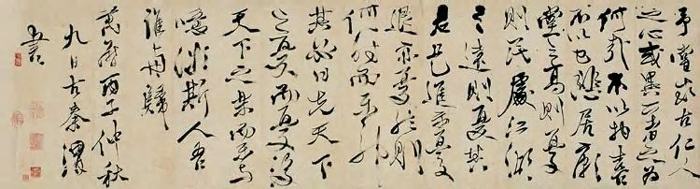 予嘗求古仁人
之心或異二者之為
何哉不以物喜
不以己悲居廟
堂之高則憂
其民處江湖
之遠則憂其
君是進亦憂
退亦憂然則
何時而樂耶
其必曰先天下
之憂而憂後
天下之樂而樂歟
噫微斯人吾
誰與歸
萬曆丙子仲秋
九日古秦渭
書